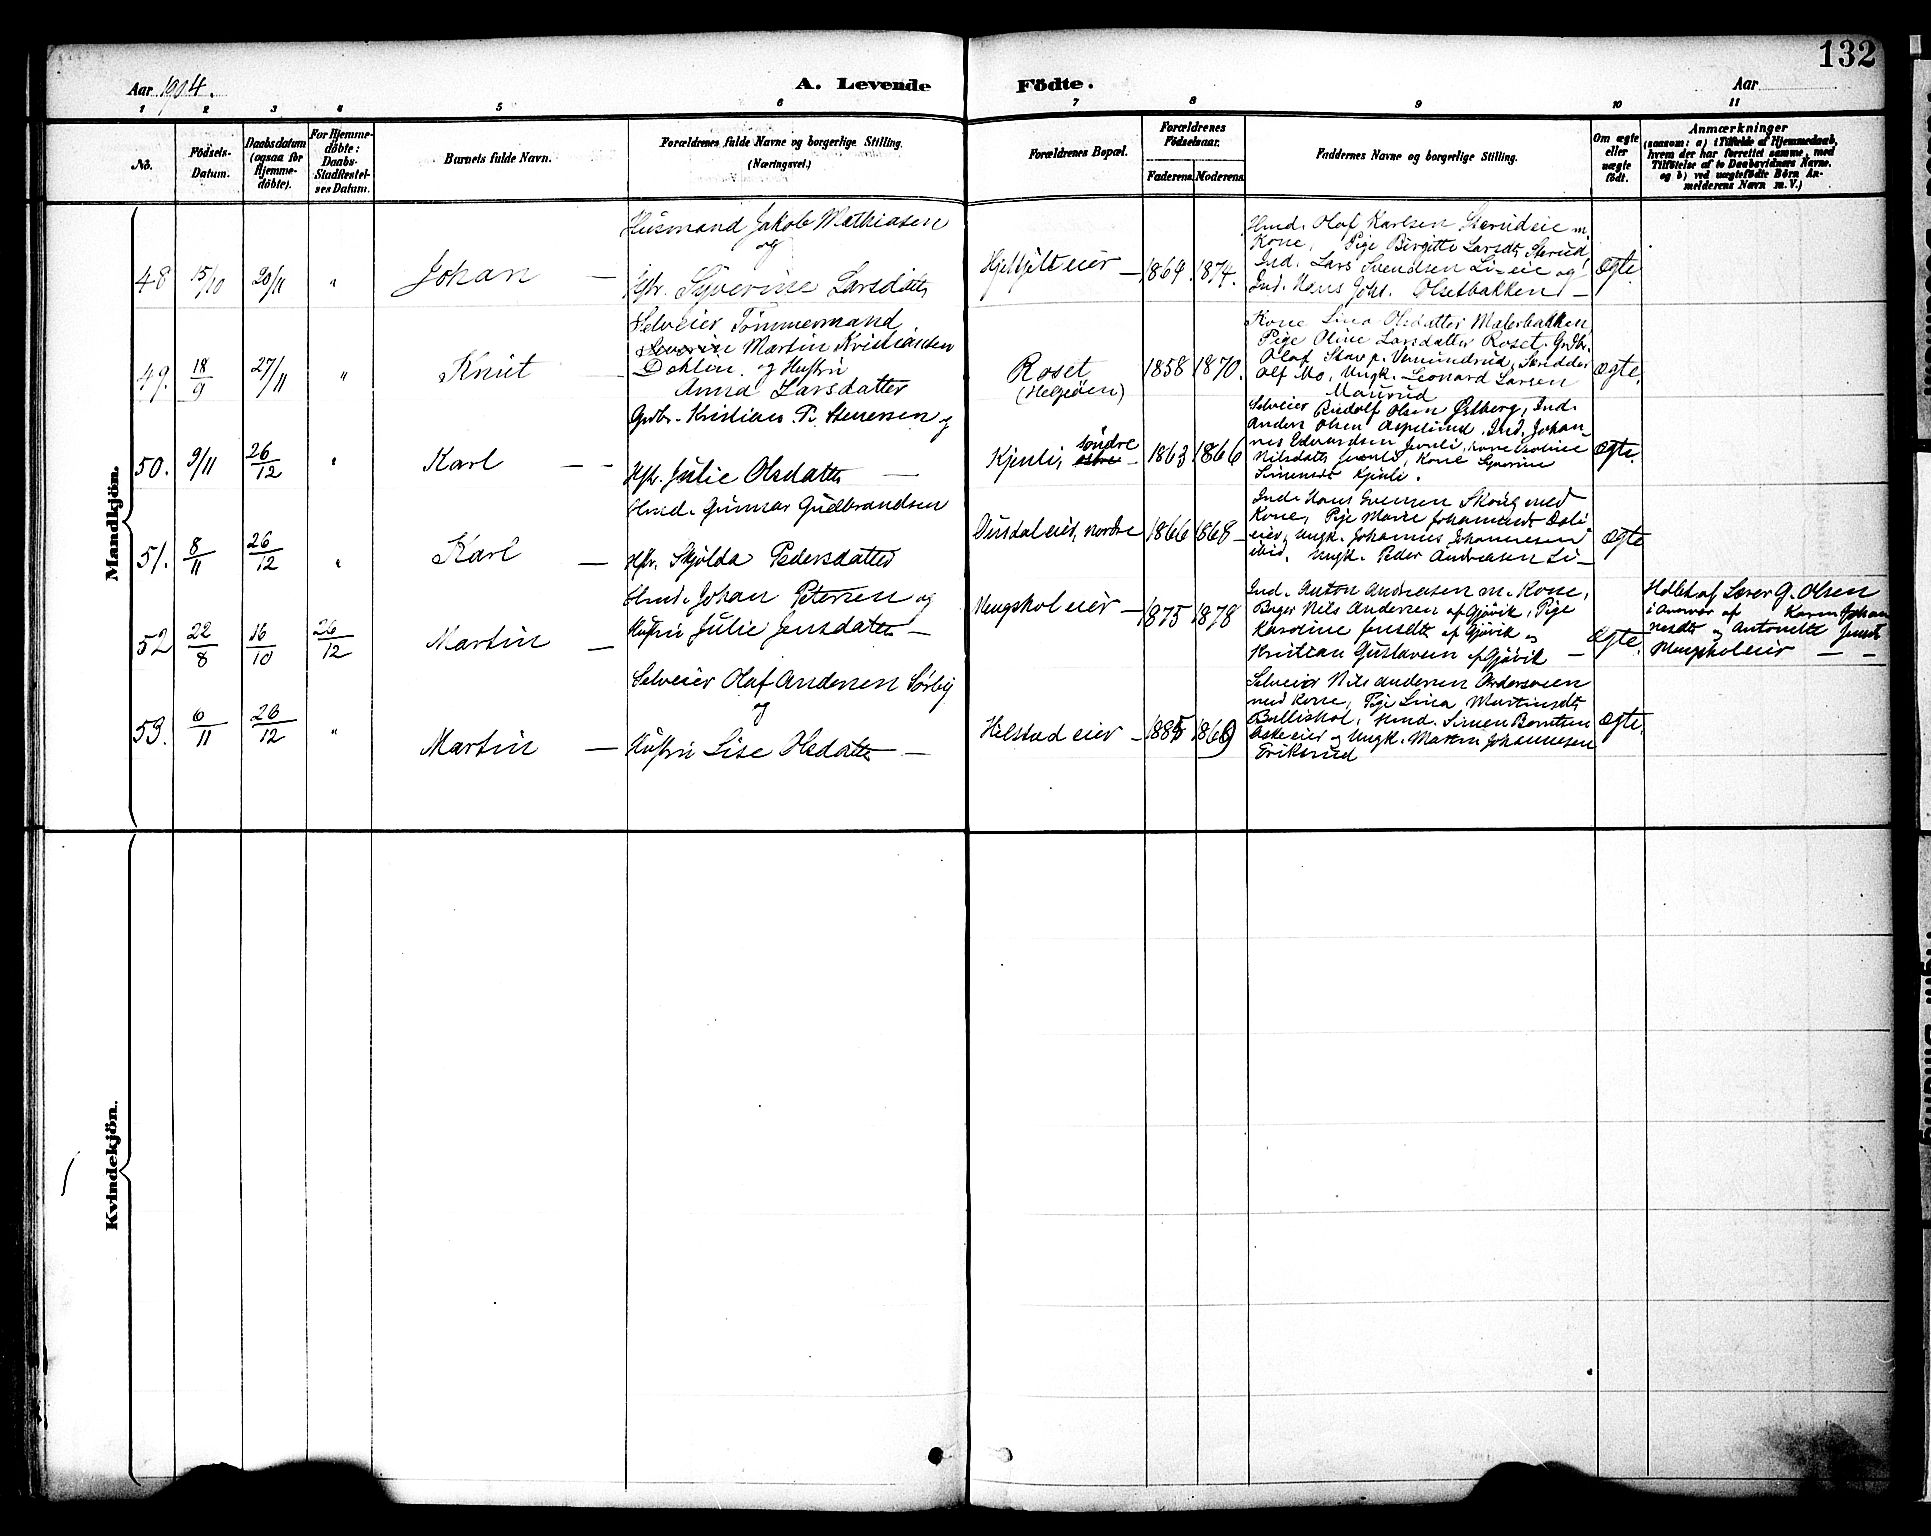 132
Aar 1904.
A. Levende Födte.
Aar
1 2 3 4 5 6 7 8 9 10 11
No.
Födsels-Datum.
Daabsdatum (ogsaa for Hjemmedöbte).
For Hjemmedöbte: Daabs-Stadfæstelses Datum.
Barnets fulde Navn.
Forældrenes fulde Navne og borgerlige Stilling.
(Næringsvei.)
Forældrenes Bopæl.
Forældrenes Födselsaar.
Faderens. Moderens.
Faddernes Navne og borgerlige Stilling.
Om ægte eller uægte födt.
Anmærkninger
(saasom: a) i Tilfælde af Hjemmedaab, hvem der har forrettet samme, med Tilföielse af to Daabsvidners Navne. og b) ved uægtefödte Börn Anmelderens Navn m. V.)
Mandkjön.
48 15/10 20/11 " Johan —
Husmand Jakob Mathiasen
og
Hstr. Syverine Larsdatter
eier — 1864. 1874.
Hmd. Olaf Karlsen Sterudeie m.
Kone, Pige Birgitte Larsdtr Sterud,
Ind. Lars Svendsen Lieie og
Ind. Hans Johs. Olsetbakken —
Ægte.
49. 18/9 27/11 " Knut
Selveier Tømmermand
Martin Kristiansen
Dahlen og Hustru
Anna Larsdatter
Roset
(Helgøen)
1858 1870.
Kone Lina Olsdatter Malerbakken,
Pige Oline Larsdatter Roset. Gr.
Olaf
Olf Mo, Ungk. Leonard Larsen
Maurud
Ægte.
50. 9/11 26/12 " Karl — —
Grdbr. Kristian P. Stenersen og
Hstr. Julie Olsdatter —
Kjenli, söndre — 1863 1866
Selveier Rudolf Olsen Østberg, Ind.
Anders Olsen Aspelund. Ind. Johan-
nes Edvardsen Jevnli, Kone
Nilsdatter Jevnli, Kone Syverine
Simensdr Kjenli.
Ægte.
51. 8/11 26/12 " Karl —
Hmd. Gunnar Gudbrandsen
Hstr. Skjølda Pedersdatter
eier, nordre 1866 1868 —
Ind. Hans Evensen Skoug med
Kone, Pige Marie Johannesdr
eier, Ungk. Johannes Johannesen
ibid. Ungk. Peder Andreasen Li —
Ægte
52 22/8 16/10 26/12 Martin —
Hmd. Johan Petersen og
Hustru Julie Jensdatter —
Mengskoleier — 1875 1878
Ind. Anton Andreasen m. Kone,
Bager Nils Andersen af Gjøvik, Pige
Karoline Jensdtr af Gjøvik og
Kristian Gustavsen af Gjøvik —
Ægte.
Hdbt af Lærer G. Olsen
i Overvær af Karen Johan-
nesdtr og Antonette Jensdtr
Mengskoleier — —
53. 6/11 26/12 " Martin —
Selveier Olaf Andersen Sørby
og
Hustru Lise Olsdatter —
Helstad eier — 1885 1869
Selveier Nils Andersen
med Kone, Pige Lina Martinsdtr
Balliskol, Hmd. Simen Berntsen
eier og Ungk. Martin Johannesen
Eriksrud
Ægte.
Kvindekjön.